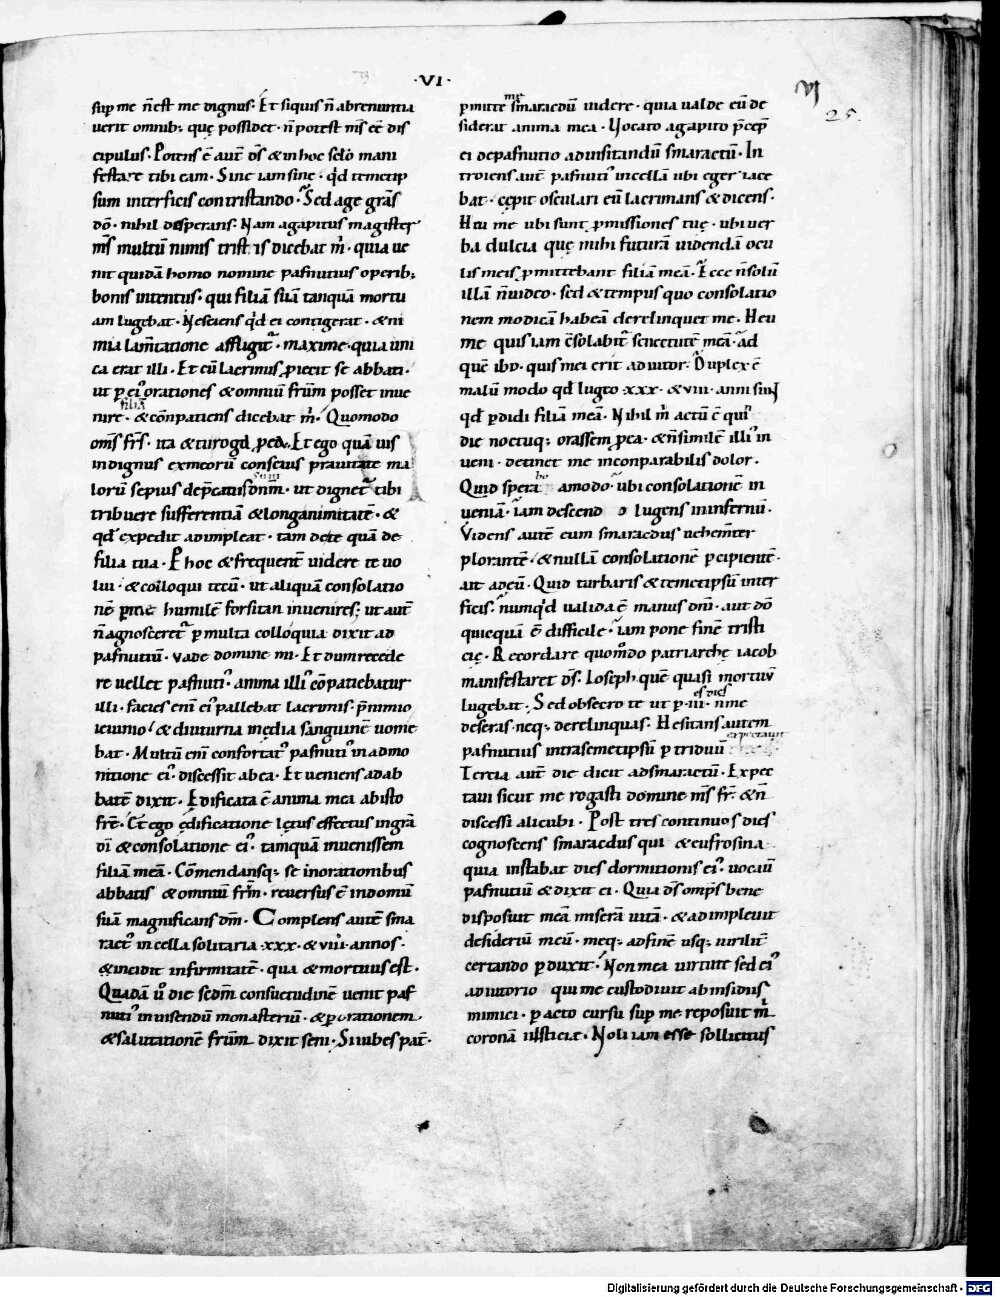 ·VI·
VI
25.
sup me n̄ est me dignus. Et siquis n̄ abrenuntia
uerit omnib; quę possidet · n̄ potest m̄s ēē dis
cipulus. Potens ē aut̄ d̄s & in hoc sc̄lo mani
festare tibi eam. Sine iam sine · qd̄ temetip
sum interficis contristando. Sed age grās
dō · nihil desperans. Nam agapitus magister
m̄s multū nimis tristis dicebat m̄ · quia ue
nit quidā homo nomine pafnutius operib;
bonis intentus · qui filiā suā tanquā mortu
am lugebat · Nesciens qd̄ ei contigerat · & ni
mia lam̄tatione affligit̄ · maxime quia uni
ca erat illi. Et cū lacrimis proiecit se abbati ·
ut p ei' orationes & omniū fr̄m posset inue
filiā
nire · & cōmpatiens dicebat m̄. Quomodo
om̄s fr̄s · ita & tu rogd pea. Et ego quā uis
indignus ex meorū conscius prauitate ma
lorū sepius dep̄catus dn̄m · ut dignet̄ tibi
tribuere sufferentiā & longanimitatē · &
qd̄ expedit adimpleat · tam de te quā de
filia tua. P hoc & frequent̄ uidere te uo
lui · & colloqui tecū · ut aliquā consolatio
nē p me humilē forsitan inuenires; ut aut̄
n̄ agnosceret̄ p multa colloquia dixit ad
pafnutiū · vade domine mi · Et dum recede
re uellet pafnuti' · anima illi' cōpatiebatur
illi · facies eni ei' pallebat lacrimis · p̄ nimio
ieiunio & diuturna media sanguinē uome
bat · Multū eni confortat' pafnuti' in admo
nitione ei' · discessit ab ea · Et ueniens ad ab
batē dixit · Edificata ē anima mea ab isto
fr̄e · Et ego ędificatione lętus effectus in grā
dī & consolatione ei' · tamquā inuenissem
filiā meā · Cōmendansq; se in orationibus
abbatis & omniū fr̄m · reuersus ē in domū
suā magnificans dm̄ · Complens autē sma
ract' in cella solitaria ·xxx· & viii· annos ·
& incidit infirmitatē · qua & mortuus est ·
Quadā u' die sedm̄ consuetudinē uenit paf
nuti' in uisendū monasteriū · & p orationem
& salutationē fr̄um dixit seni · Si iubes pat̄ ·
me
pmitte smaracdū uidere · quia ualde eū de
siderat anima mea · Vocato agapito p̄cep̄
ei de pafnutio ad uisitandū smaractū · In
troiens aut̄ pafnuti' in cellā ubi eger iace
bat · cępit osculari eū lacrimans & dicens ·
Heu me ubi sunt pmissiones tuę · ubi uer
ba dulcia quę mihi futurā uidendā ocu
lis meis pmittebant filiā meā · Ecce n̄ solū
illā n̄ uideo · sed & tempus quo consolatio
nem modicā habeā derelinquet me · Heu
me quis iam c̄solabit̄ senectutē meā · ad
quē ibo · quis mei erit adiutor · Duplex ē
malū modo qd̄ lugeo ·xxx· & viii· anni sun
qd̄ pdidi filiā meā · Nihil m̄ actū ē qui
die noctuq; orassem p ea · & n̄ similē illi' in
ueni · detinet me inconparabilis dolor ·
Quid sperabo amodo · ubi consolationē in
ueniā · iam descendo lugens in infernū ·
Videns autē eum smaracdus uehem̄ter
plorantē · & nullā consolationē pcipientē ·
ait ad eū · Quid turbaris & temetipsū inter
ficis · numq'd ualida ē manus dn̄i · aut dō
quicquā ē difficile · iam pone finē tristi
cię · Recordare quomodo patriarchę iacob
manifestaret d̄s · Ioseph quē quasi mortuū
lugebat · Sed obsecro te ut p ·iii· dies n̄ me
deseras neq; derelinquas · Hesitans autem
pafnutius intra semetipsū p triduū expectauit
Tercia aut̄ die dicit ad smaractū · Expec
taui sicut me rogasti domine m̄s fr̄ · & n̄
discessi alicubi · Post tres continuos dies
cognoscens smaracdus qui & eufrosina
quia instabat dies dormitionis ei' · uocauit
pafnutiū & dixit ei · Quia d̄s omp̄s bene
disposuit meā miserā uitā · & adimpleuit
desideriū meū · meq; ad finē usq; uirilit̄
certando pduxit · Non mea uirtute sed ei'
adiutorio qui me custodiuit ab insidiis
inimici · pacto cursu sup me reposuit m̄
coronā iusticię · Noli iam esse sollicitus
Digitalisierung gefördert durch die Deutsche Forschungsgemeinschaft - DFG